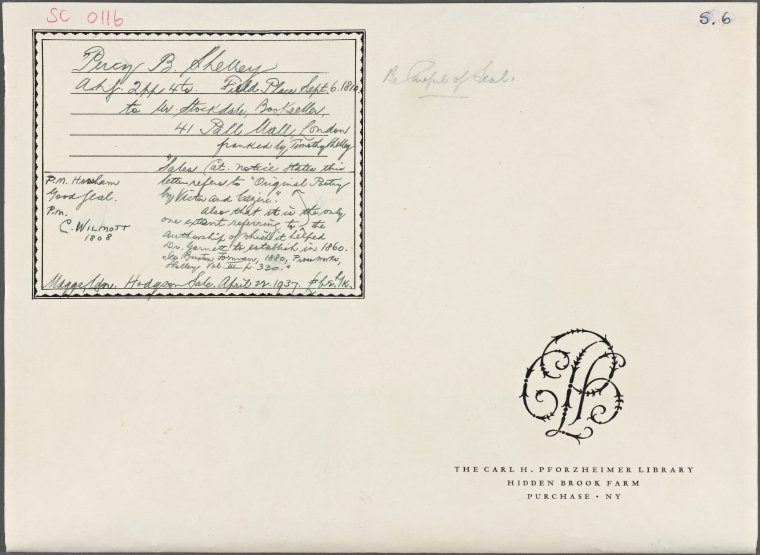 SC 0116
S. 6
Percy B Shelley
A.l.s. 2pp 4to. Field Place Sept. 6. 1810.
to Mr Stockdale, Bookseller,
41 Pall Mall, London
franked by Timothy Shelley
"Sales Cat. notice states this
letter refers to "Original Poetry
by Victor and Cazire".
Also that it is the only
one extant referring to the
authorship of which it helped
Dr. Garnett to establish in 1860.
See Buxton Forman, 1880, Prose Works,
Shelley Vol. III p. 330."
P.M. Horsham
Good Seal.
P.M.
C. WILMOTT
1808
Maggs, Lon. Hodgson Sale. April 22. 1937.
Be Careful of Seal.
THE CARL H. PFORZHEIMER LIBRARY
HIDDEN BROOK FARM
PURCHASE • NY